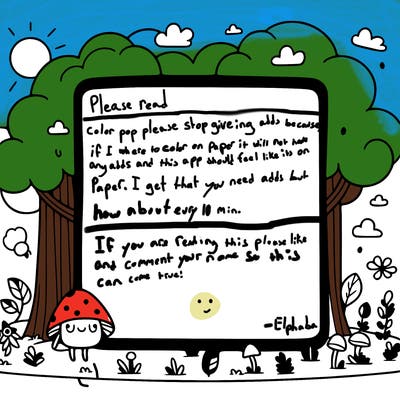 Please read
Color pop please stop giveing adds because
if I where to color on Paper it will not have
any adds and this app should feel like its on
Paper. I get that you need adds but
how about evry 10 min.
If you are reading this please like
and comment your name so this
can come true!
-Elphaba